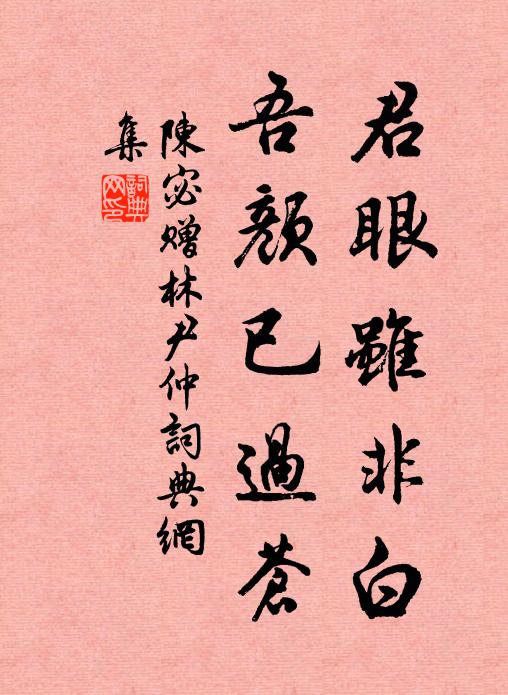 君眼雖非白
吾顏已過蒼
陳宓贈林尹仲詞典網
集
詞典
网印